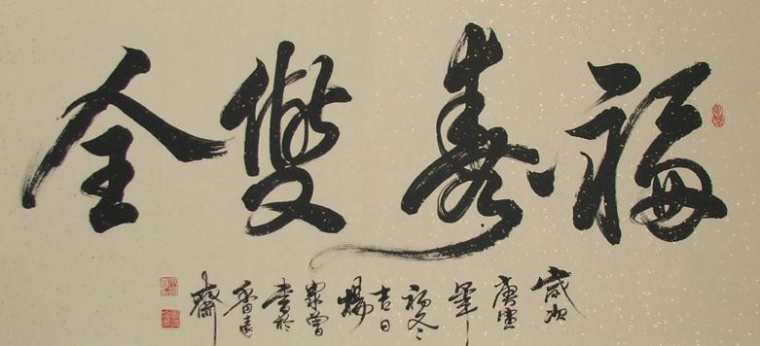 福壽雙全
歲次
庚寅
年
初冬
吉日
楊
曾
書於
香遠
齋